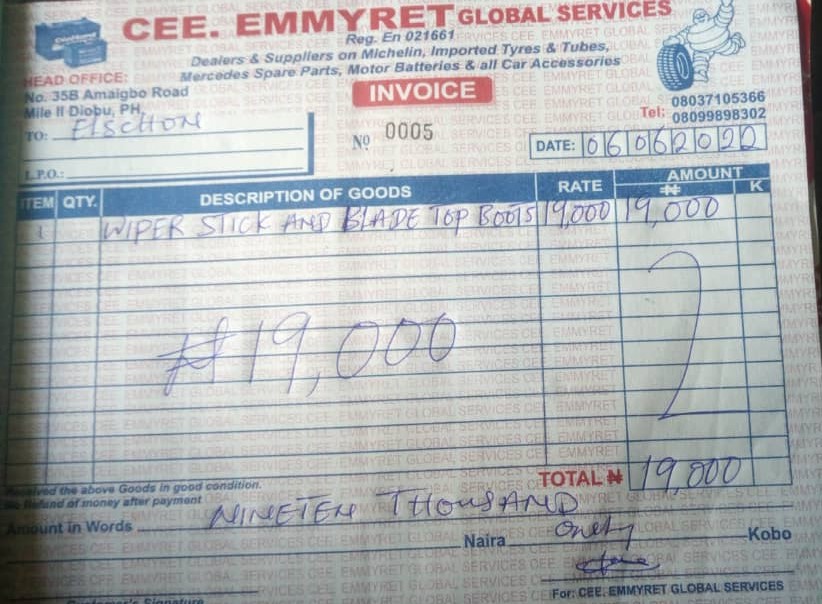 CEE. EMMYRET GLOBAL SERVICES
Reg. En 021661
Dealers & Suppliers on Michelin, Imported Tyres & Tubes,
Mercedes Spare Parts, Motor Batteries & all Car Accessories
HEAD OFFICE:
No. 35B Amaigbo Road
Mile II Diobu, PH.
INVOICE
Tel: 08037105366
08099898302
TO:
L.P.O.:
No 0005
DATE: 06062022
ITEM QTY. DESCRIPTION OF GOODS RATE AMOUNT
₦ K
1 WIPER STICK AND BLADE TOP BOOTS 19,000 19,000
₦19,000
TOTAL ₦ 19,000
Received the above Goods in good condition.
No Refund of money after payment
Amount in Words NINETEN THOUSAND
Naira Kobo
Customer's Signature
For: CEE. EMMYRET GLOBAL SERVICES